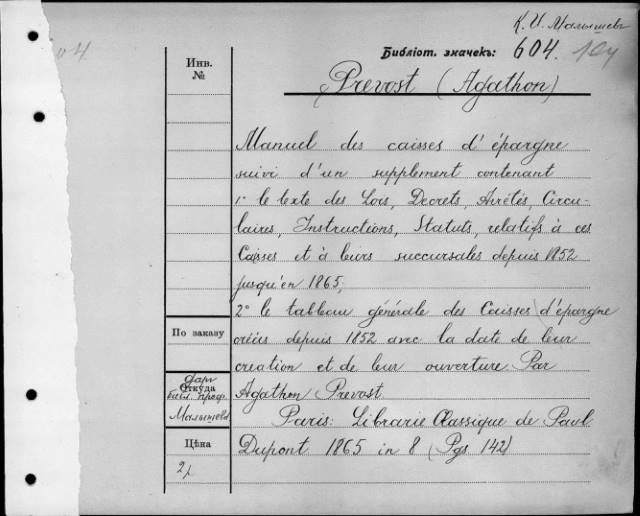 К. И. Малышевъ
Библіот. значекъ: 604.
Инв.
№
Prevost (Agathon)
Manuel des caisses d'épargne
suivi d'un supplement contenant
1° le texte des Lois, Decrets, Arrêtés, Circu-
laires, Instructions, Statuts, relatifs à ces
Caisses et à leurs succursales depuis 1852
jusqu'en 1865;
2° le tableau générale des Caisses d'épargne
créées depuis 1852 avec la date de leur
creation et de leur ouverture Par
Agathon Prevost.
Paris: Librarie Classique de Paul
Dupont 1865 in 8 (Pgs 142)
По заказу
Откуда
Даръ
библ. проф.
Малышева
Цѣна
2р